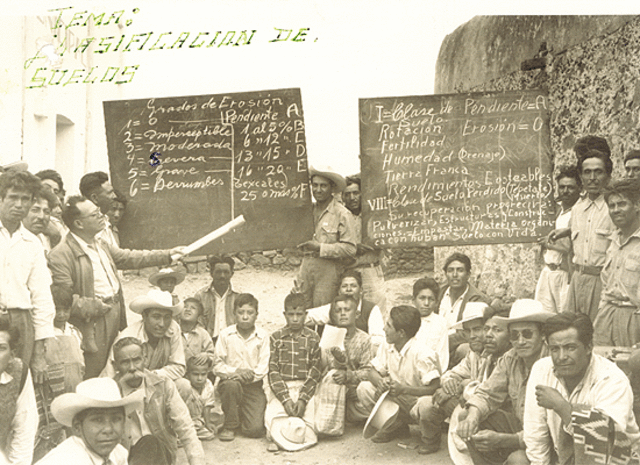 TEMA:
CLASIFICACION DE.
SUELOS
Grados de Erosión
1 = 0 Pendiente A
2 = Imperseptible 1 al 5% B
3 = Moderada 6 " 12 " C
4 = Severa 13 " 15 " D
5 = Grave 16 " 20 " E
6 = Derrumbes 25 o mas % F
I = Clase de Pendiente = A
Suelo
Rotación Erosión = 0
Fertilidad
Humedad (Drenaje)
Tierra Franca
Rendimientos Costeables
VIII = Clase de Suelo Perdido (Tepetate)
Su recuperación progresiva:
Pulverizar Estructuras Construc-
ciones = Empastar Materia Organi-
ca con humus Suelo con Vida